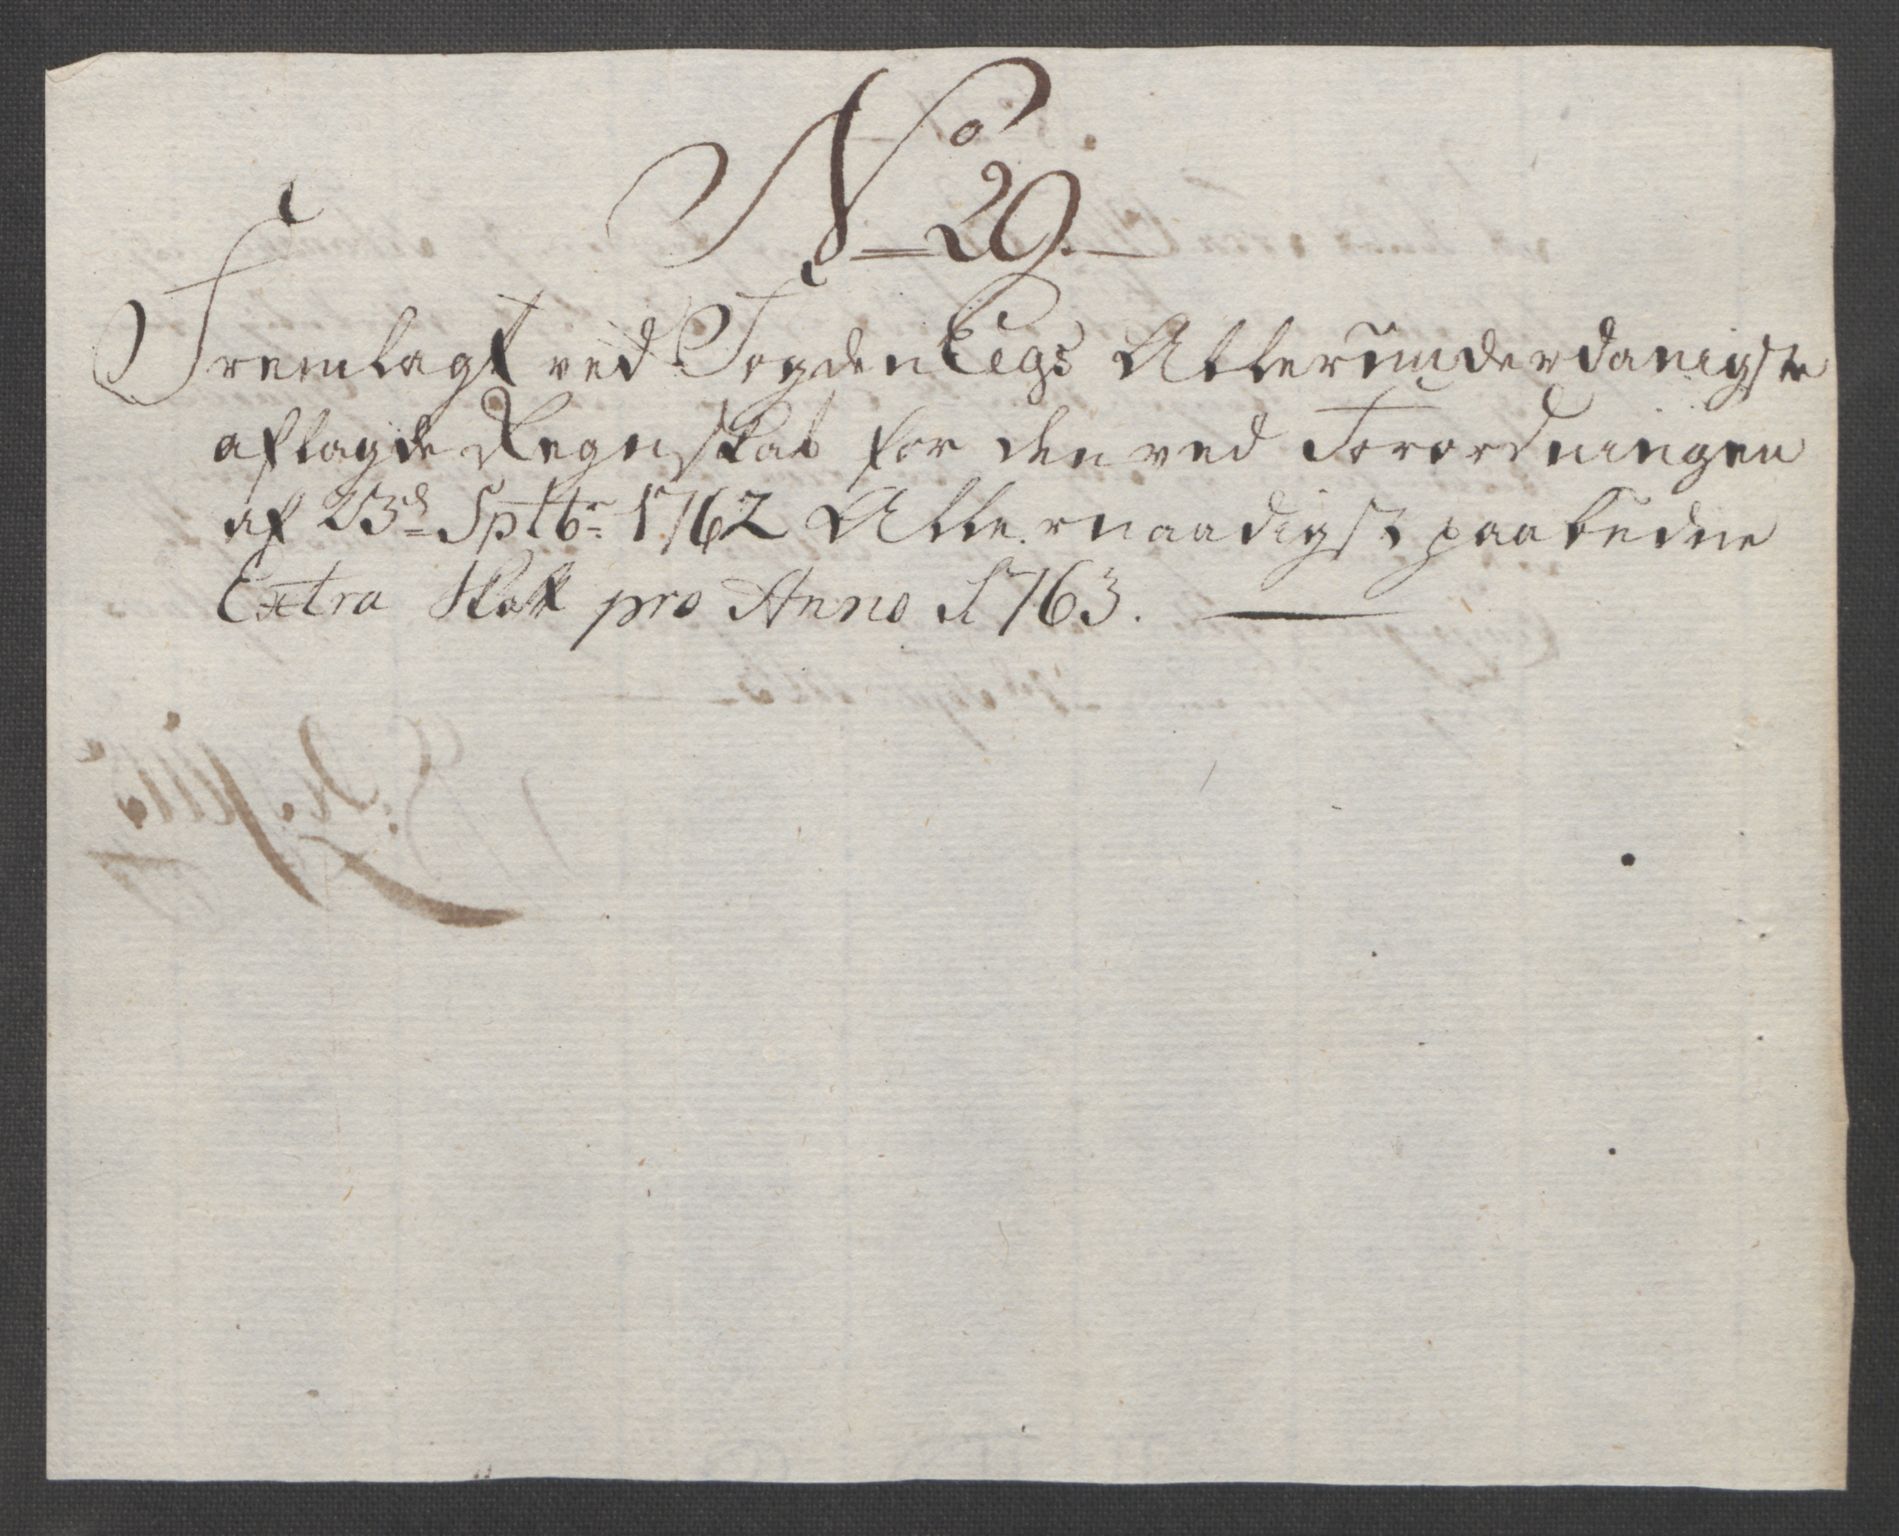 No 29.
Fremlagt ved Fogden Eegs Allerunderdanigste
aflagde Regnskab for den ved Forordningen
af 23d Sptbr 1762 Allernaadigst paabudne
Extra Skatt pro Anno 1763.